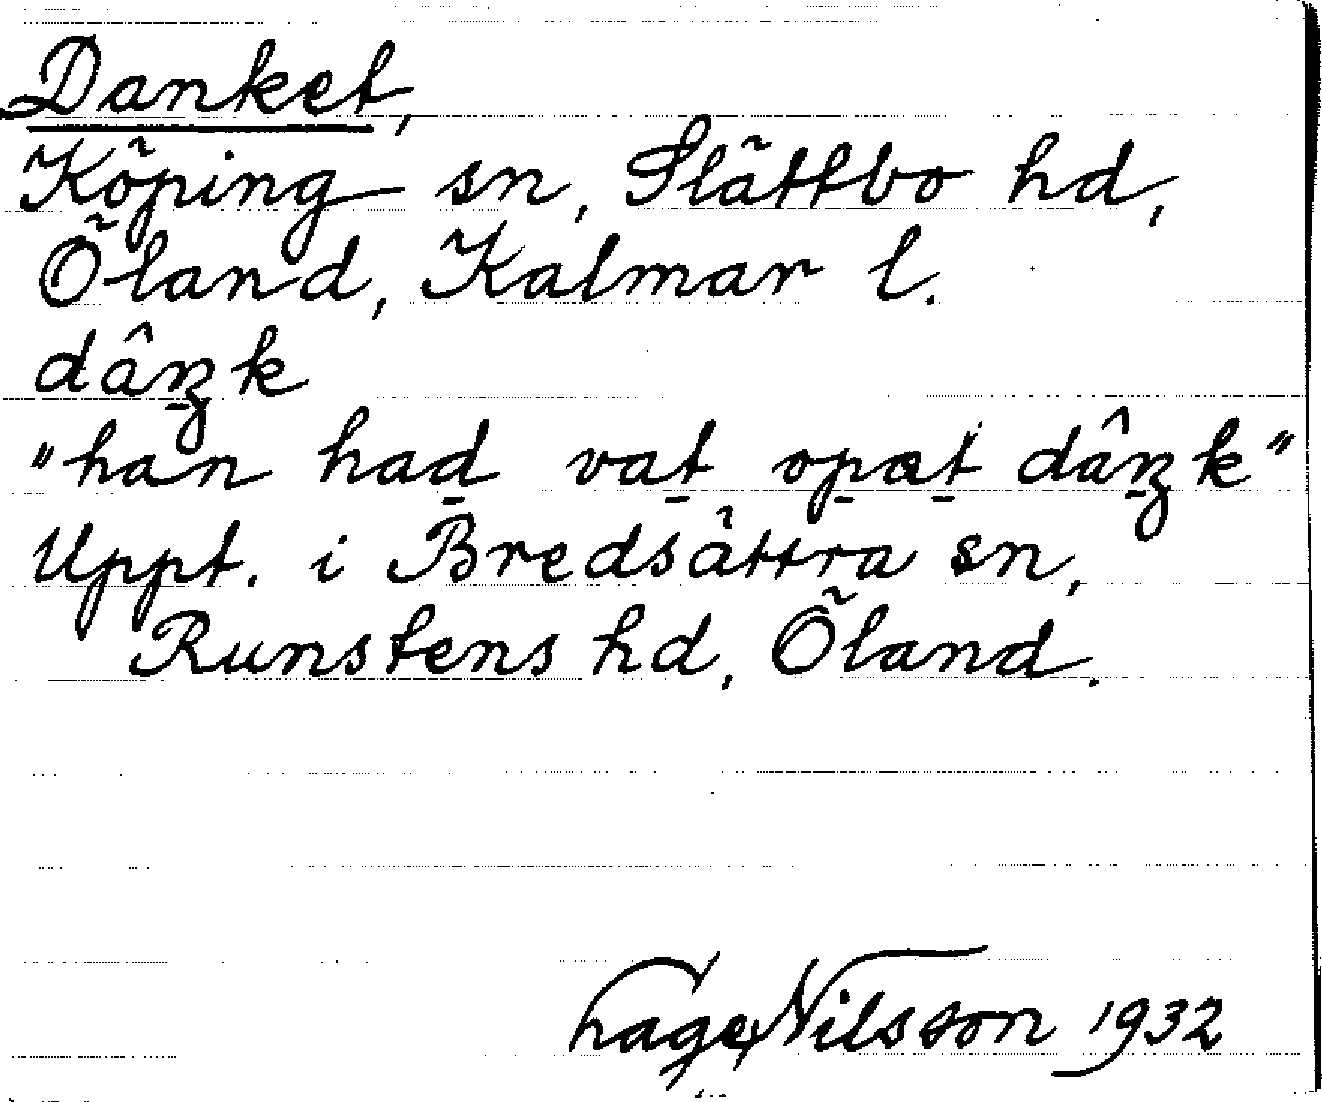 Danket,
Köping sn, Slättbo hd,
Öland, Kalmar l.
dâŋk
"han had̠ vat̠ op̠æt̠ dâŋk"
Uppt. i Bredsättra sn,
Runstens hd, Öland.
Hage Nilsson 1932